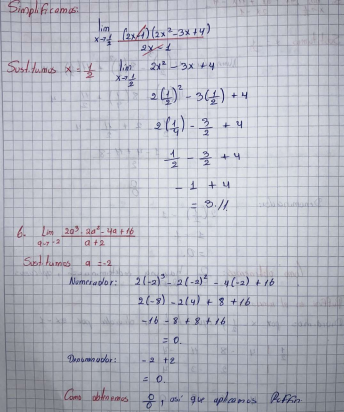 Simplificamos.
lim x→1/2 (2x-1)(2x²-3x+4) / 2x-1
Sustitumos x = 1/2 lim x→1/2 2x² - 3x + 4
2(1/2)² - 3(1/2) + 4
2(1/4) - 3/2 + 4
1/2 - 3/2 + 4
- 1 + 4
= 3.//
6. Lim a→-2 2a³ - 2a² - 4a + 16 / a + 2
Sustitumos a = -2
Numerador: 2(-2)³ - 2(-2)² - 4(-2) + 16
2(-8) - 2(4) + 8 + 16
-16 - 8 + 8 + 16
= 0.
Denominador: -2 + 2
= 0.
Como obtenemos 0/0, así que aplicamos Ruffini